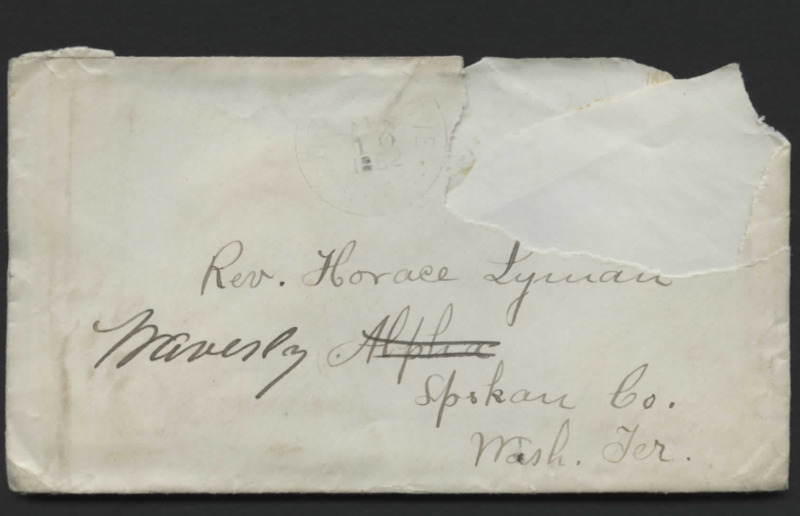 10
1882
Rev. Horace Lyman
Waverly Alpha
Spokan Co.
Wash. Ter.